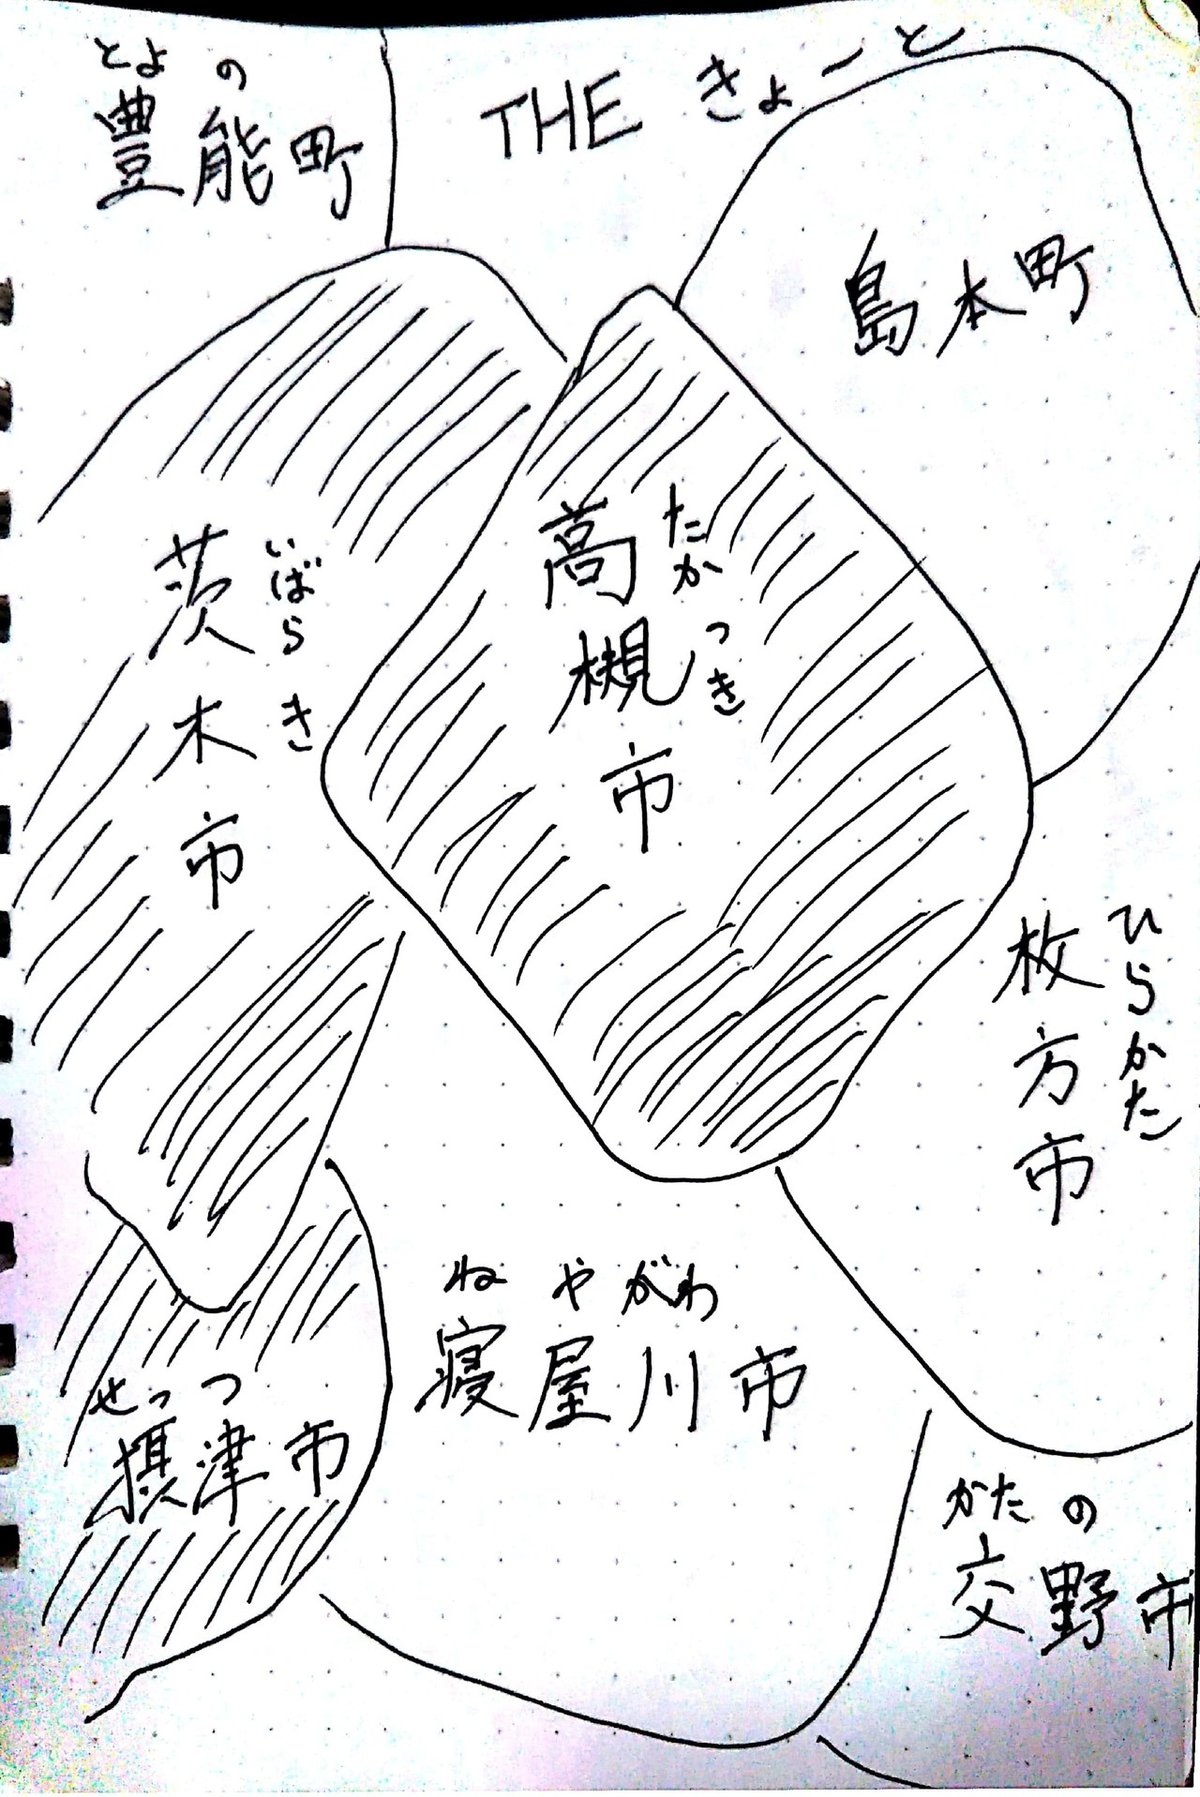 とよの
豊能町
THE きょーと
島本町
いばらき
茨木市
たかつき
高槻市
ひらかた
枚方市
ねやがわ
寝屋川市
せっつ
摂津市
かたの
交野市